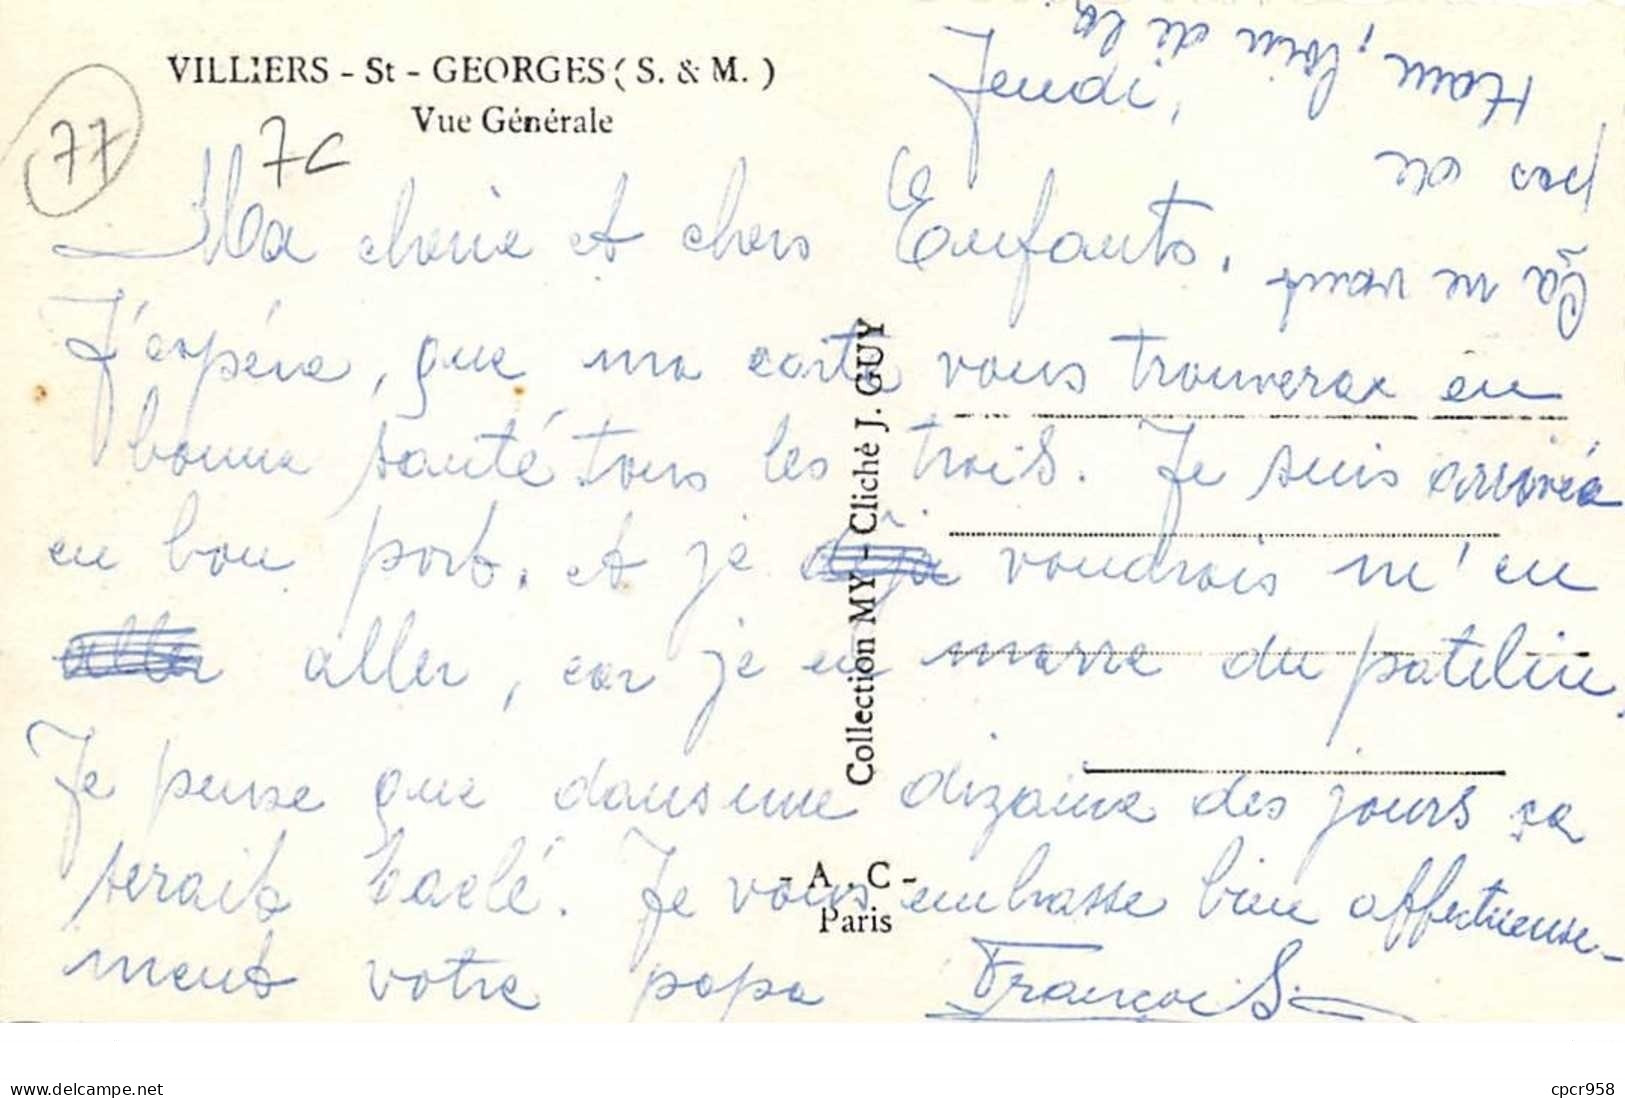 VILLIERS - St - GEORGES ( S. & M. )
Vue Générale
77
7C
Jeudi,
Ma cherie et chers Enfants,
J'espére, que ma carte vous trouverae en
bonne santé tous les trois. Je suis arrivée
en bon port, et je deja voudrois m'en
aller aller, car je en marre du patelin,
Je pense que dans une dizaine des jours sa
serait baclé. Je vous embrasse bien affectueuse-
ment votre papa François
Ça ne vaut
pas de
Ham, loin de la
Collection MY - Cliché J. GUY
- A. C -
Paris
delcampe.net
cpcr958